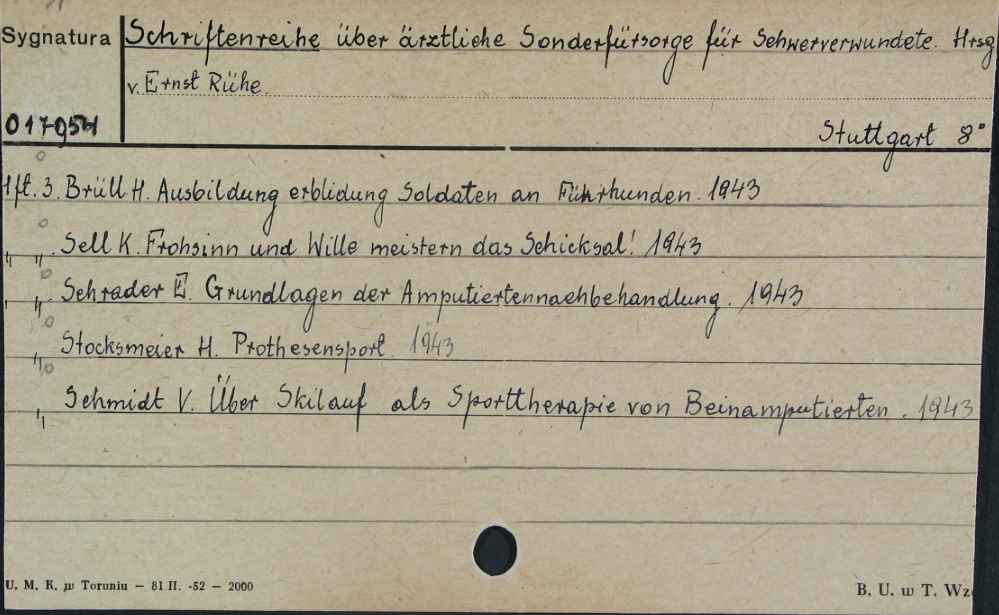 Sygnatura Schriftenreihe über ärztliche Sonderfürsorge für Schwerverwundete. Hrsg
v. Ernst Rühe.
017954 Stuttgart 8°
Hft. 3. Brüll H. Ausbildung erblidung Soldaten an Führhunden. 1943
" " Sell K. Frohsinn und Wille meistern das Schicksal! 1943
" " Schrader E. Grundlagen der Amputiertennachbehandlung. 1943
" Stocksmeier H. Prothesensport. 1943
" Schmidt V. Über Skilauf als Sporttherapie von Beinamputierten. 1943
U. M. K. w Toruniu — 81 II. -52 — 2000 B. U. w T. Wz